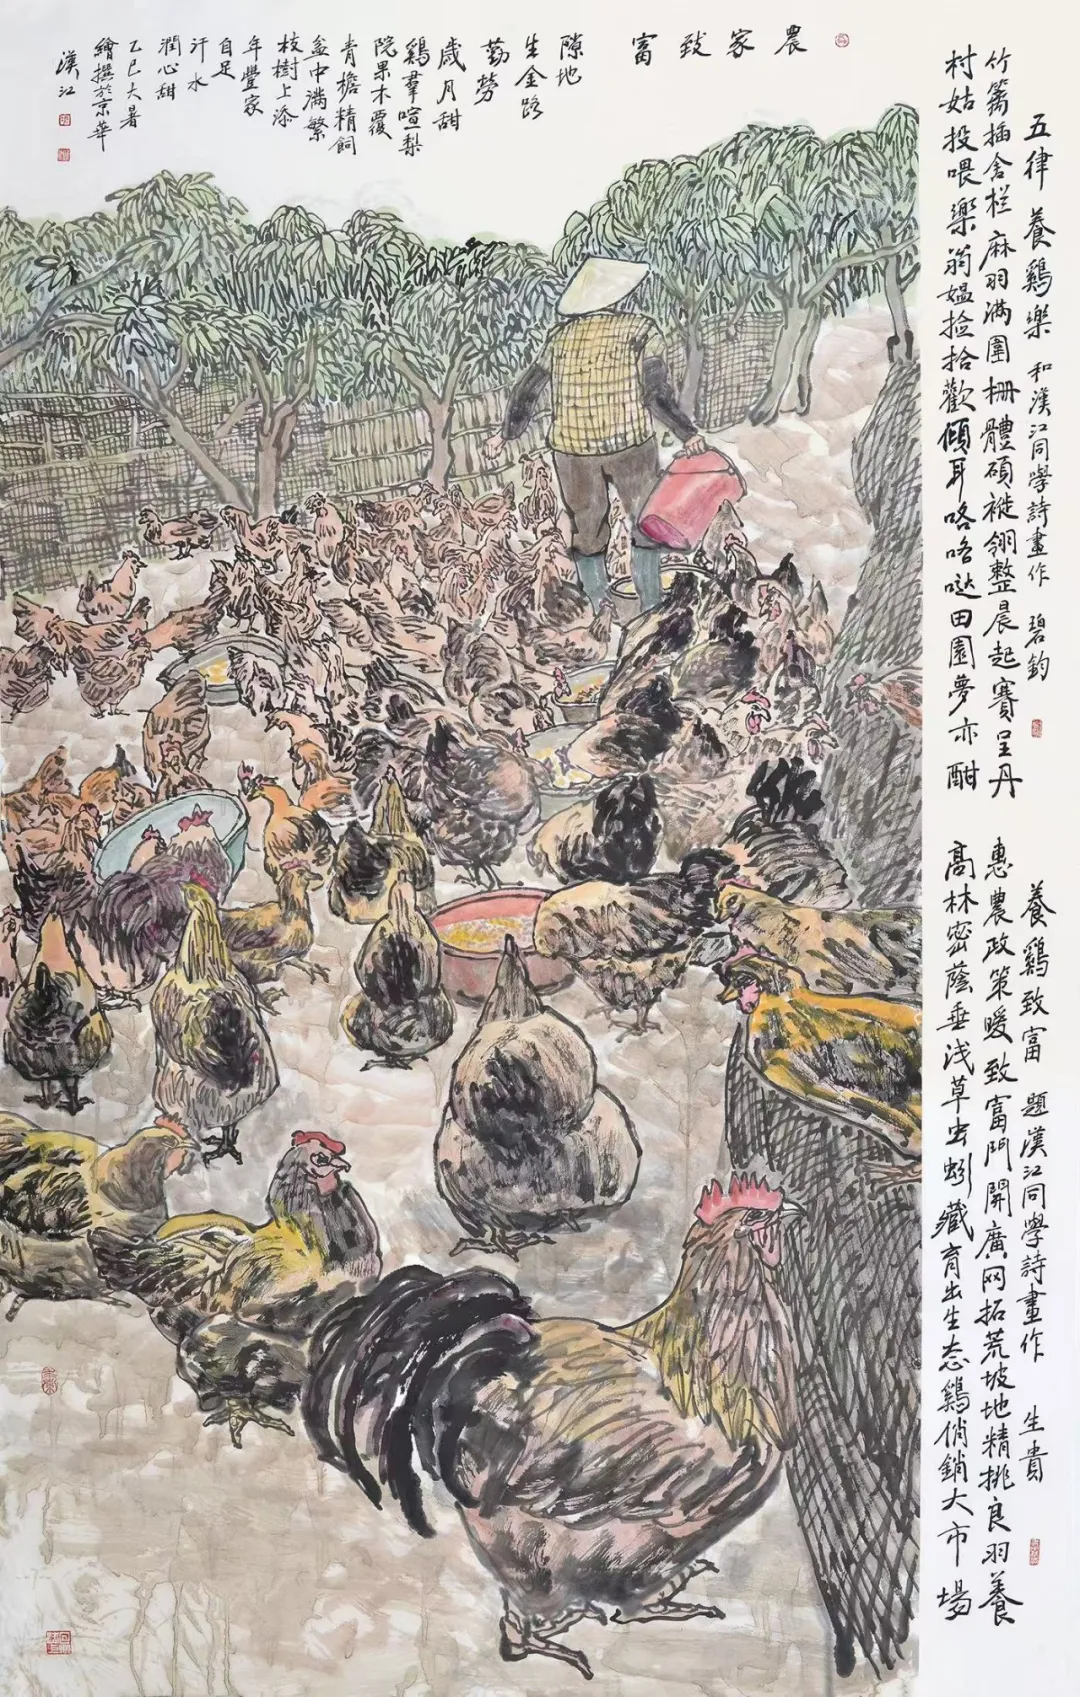 五律 養鷄樂 和漢江同學詩畫作 碧鈞
竹篱插舍栏麻羽滿圍柵體碩褷翎整晨起賽呈丹
村姑投喂樂翁媼捡拾歡傾耳咯咯哒田園夢亦酣
養鷄致富 題漢江同學詩畫作 生貴
惠農政策暖致富門開廣网拓荒坡地精挑良羽養
高林密蔭垂浅草虫蚓藏育出生态鷄俏銷大市場
農家致富
隙地
生金路
勤勞
歲月甜
鷄羣喧梨
院果木覆
青檐精飼
盆中满繁
枝樹上添
年豐家
自足
汗水
潤心甜
乙巳大暑
繪撰於京華
漢江